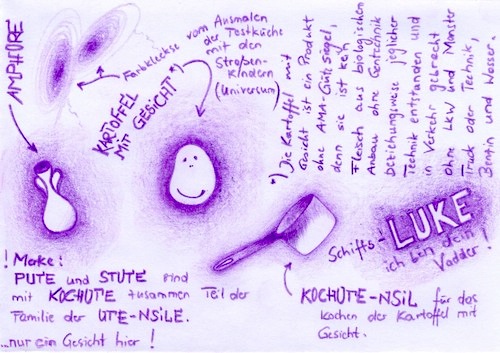 AMPHORE
Farbkleckse
vom Ausmalen
der Testküche
mit den
Straßen-
Kindern
(Universum)
KARTOFFEL
MIT GESICHT *)
*) Die Kartoffel mit
Gesicht ist ein Produkt
ohne AMA-Gütesiegel,
denn sie ist kein
Fleisch aus biologischem
Anbau ohne Gentechnik
beziehungsweise jeglicher
Technik entstanden und
in Verkehr gebracht
ohne LKW und Monster
Truck oder Technik,
Benzin und Wasser.
! Merke:
PUTE und STUTE sind
mit KOCHUTE zusammen Teil der
Familie der UTE-NSILE.
...nur ein Gesicht hier !
KOCHUTE-NSIL für das
kochen der Kartoffel mit
Gesicht.
Schiffs-
LUKE
ich bin dein
Vadder !